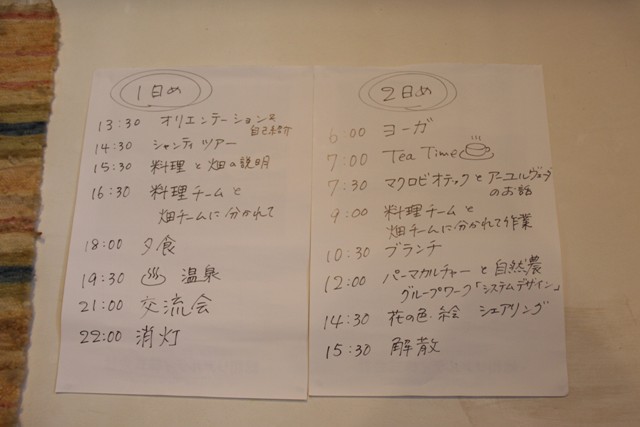 1日め
13:30 オリエンテーション&
自己紹介
14:30 シャンティツアー
15:30 料理と畑の説明
16:30 料理チームと
畑チームに分かれて
18:00 夕食
19:30 ♨ 温泉
21:00 交流会
22:00 消灯
2日め
6:00 ヨーガ
7:00 Tea Time
7:30 マクロビオティックとアーユルヴェーダ
のお話
9:00 料理チームと
畑チームに分かれて作業
10:30 ブランチ
12:00 パーマカルチャーと自然農
グループワーク「システムデザイン」
14:30 花の色絵 シェアリング
15:30 解散